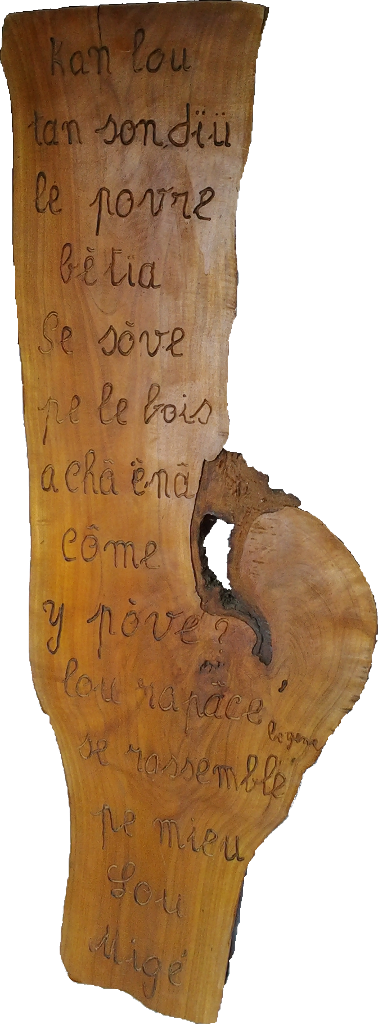 Kan lou
tan son düü
lè povre
bètïa
Se sòve
pe le bois
a châ ènâ
côme
y pòve ?
lou rapâce,
se rassemblé
pe mieu
Lou
Migé